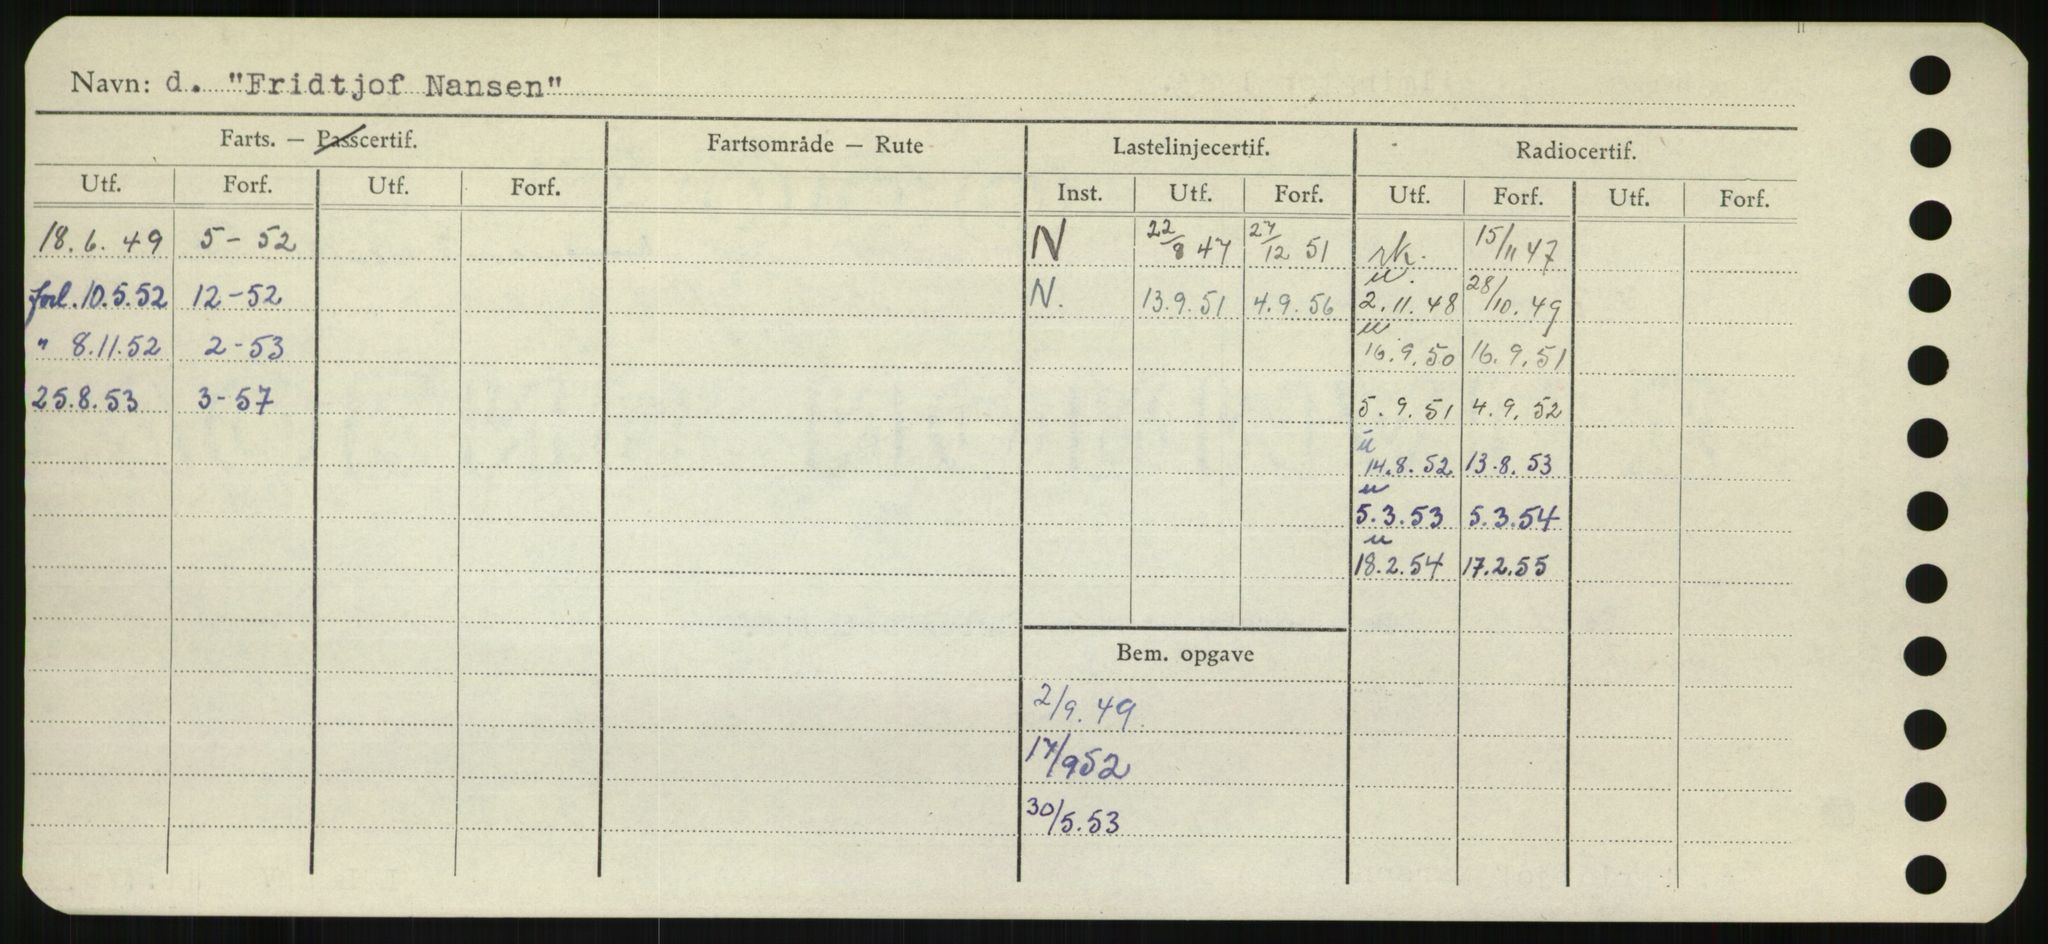 Navn: d. "Fridtjof Nansen"
Farts. — Passcertif. Fartsområde — Rute Lastelinjecertif. Radiocertif.
Utf. Forf. Utf. Forf. Inst. Utf. Forf. Utf. Forf. Utf. Forf.
18.6.49 5-52 N 22/8 47 27/12 51 rk. 15/11 47
forl. 10.5.52 12-52 N. 13.9.51 4.9.56 u. 2.11.48 28/10.49
" 8.11.52 2-53 u 16.9.50 16.9.51
25.8.53 3-57 5.9.51 4.9.52
u 14.8.52 13.8.53
u 5.3.53 5.3.54
u 18.2.54 17.2.55
Bem. opgave
2/9.49
17/952
30/5.53